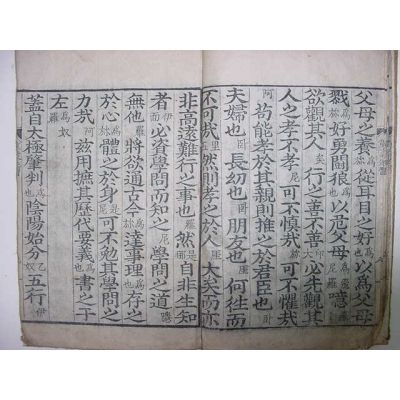 父母之養從耳目之好為也以為父母
戮為好勇鬪狠以危父母尼羅噫羅
欲觀其人矣行之善不善必先觀其
人之孝不孝尼可不慎哉可不懼哉
阿苟能孝於其親則推之於君臣也
夫婦也卧長幼也朋友也何往而
不可哉里五然則孝之於人厓大矣而亦
非高遠難行之事也羅然自非生知
者伊面必資學問而知之尼學問之道
無他羅將欲通古今達事理為也存之
於心體之於身是尼可不勉其學問之
力哉阿玆用摭其歷代要義為也書之于
左為奴羅
蓋自太極肇判也陰陽始分乙奴五行伊